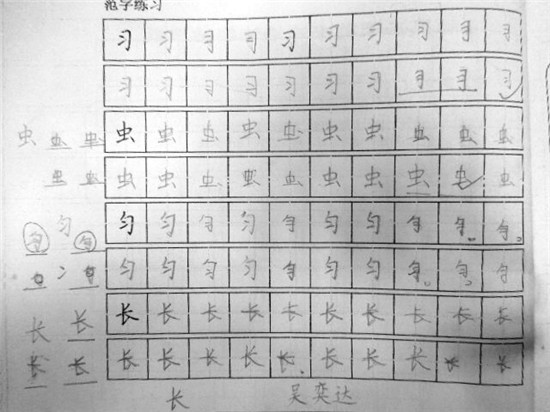 范字练习
习 习 习 习 习 习 习 习 习 习
习 习 习 习 习 习 习 习 习 习
虫 虫 虫 虫 虫 虫 虫 虫 虫 虫 虫 虫 虫
虫 虫 虫 虫 虫 虫 虫 虫 虫 虫 虫 虫
匀 匀 匀 匀 匀 匀 匀 匀 匀 匀 匀 匀 匀
匀 匀 匀 匀 匀 匀 匀 匀 匀 匀
长 长 长 长 长 长 长 长 长 长 长 长
长 长 长 长 长 长 长 长 长 长 长 长
长 吴奕达